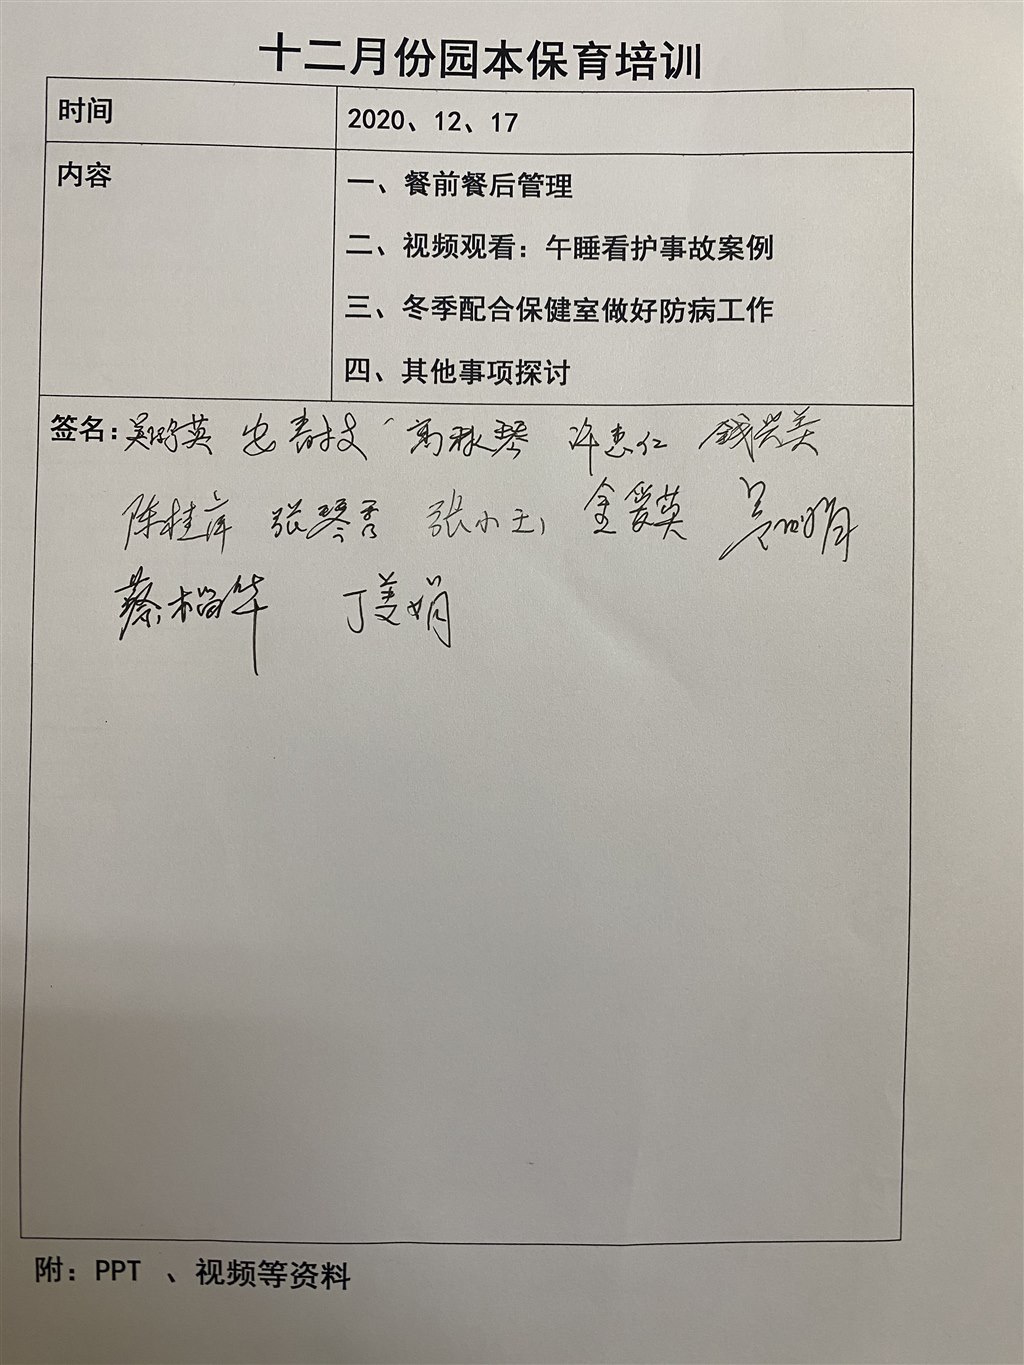 十二月份园本保育培训
时间
2020、12、17
内容
一、餐前餐后管理
二、视频观看：午睡看护事故案例
三、冬季配合保健室做好防病工作
四、其他事项探讨
签名：许惠仁
陈桂萍 张琴秀 张小玉 金爱英
丁美娟
附：PPT 、视频等资料